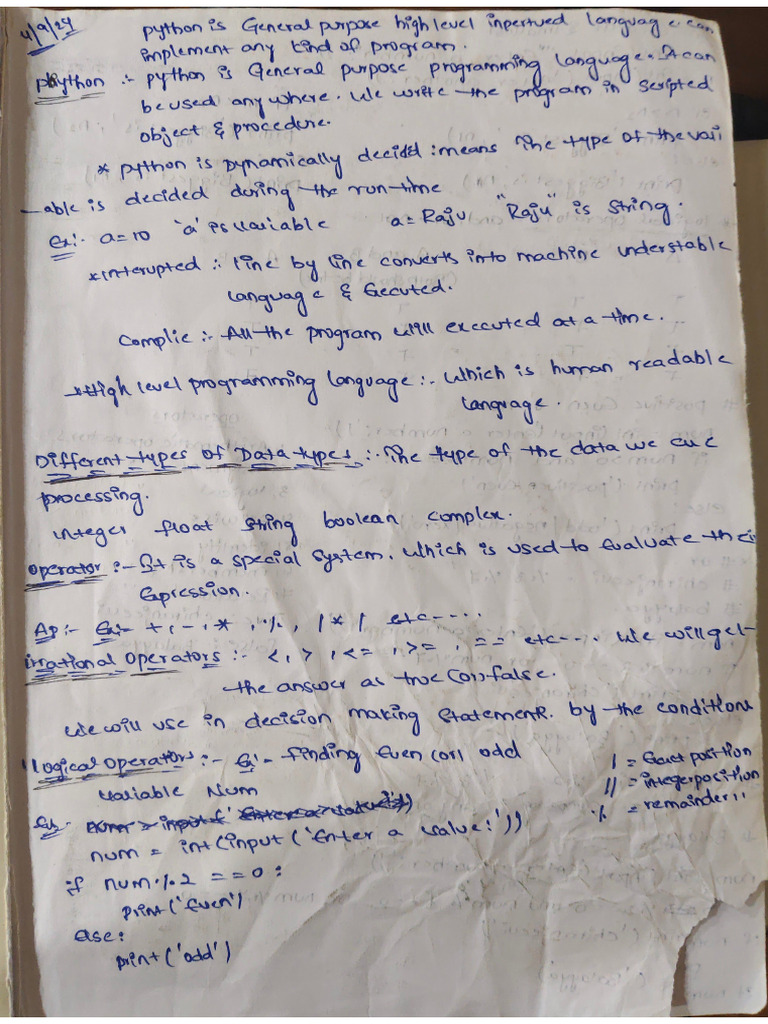 4/9/24
python is General purpose high level inpertued language can
implement any kind of program.
Python :- python is General purpose programming language. It can
be used anywhere. We write the program in scripted
object & procedure.
* python is Dynamically decided : means The type of the vari
-able is decided during the run-time
Ex:- a=10 'a' is variable a= Raju "Raju" is string.
*interupted :- line by line converts into machine understable
language & Executed.
Complie :- All the program will executed at a time.
*High level programming language :- Which is human readable
language.
Different types of Data types :- The type of the data we are
processing.
integer float string boolean complex.
operator :- It is a special system. Which is used to Evaluate the
Expression.
AP :- Ex:- +, -, *, %, / * / etc----
irrational operators :- <, >, <=, >=, == etc---. We will get
the answer as true (or) false.
We will use in decision making statement. by the conditions
logical operators :- Ex:- finding Even (or) odd
variable Num
/ = Exact position
// = integer position
% = remainder ''
Ex:- num = input (' Enter a value:'))
num = int(input ('Enter a value:'))
if num%2 ==0:
print ('Even')
else:
print ('odd')